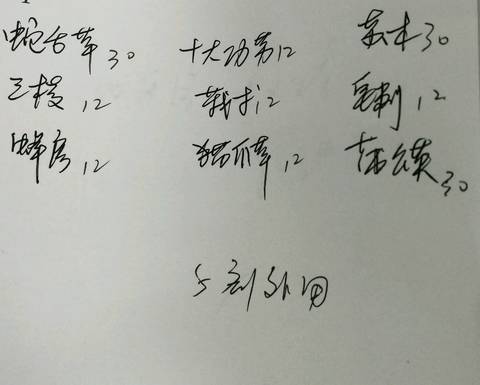 蛇舌草30 十大功劳12 苡米30
三棱12 莪术12 皂刺12
蜂房12 猫爪草12 公英30
5剂外用